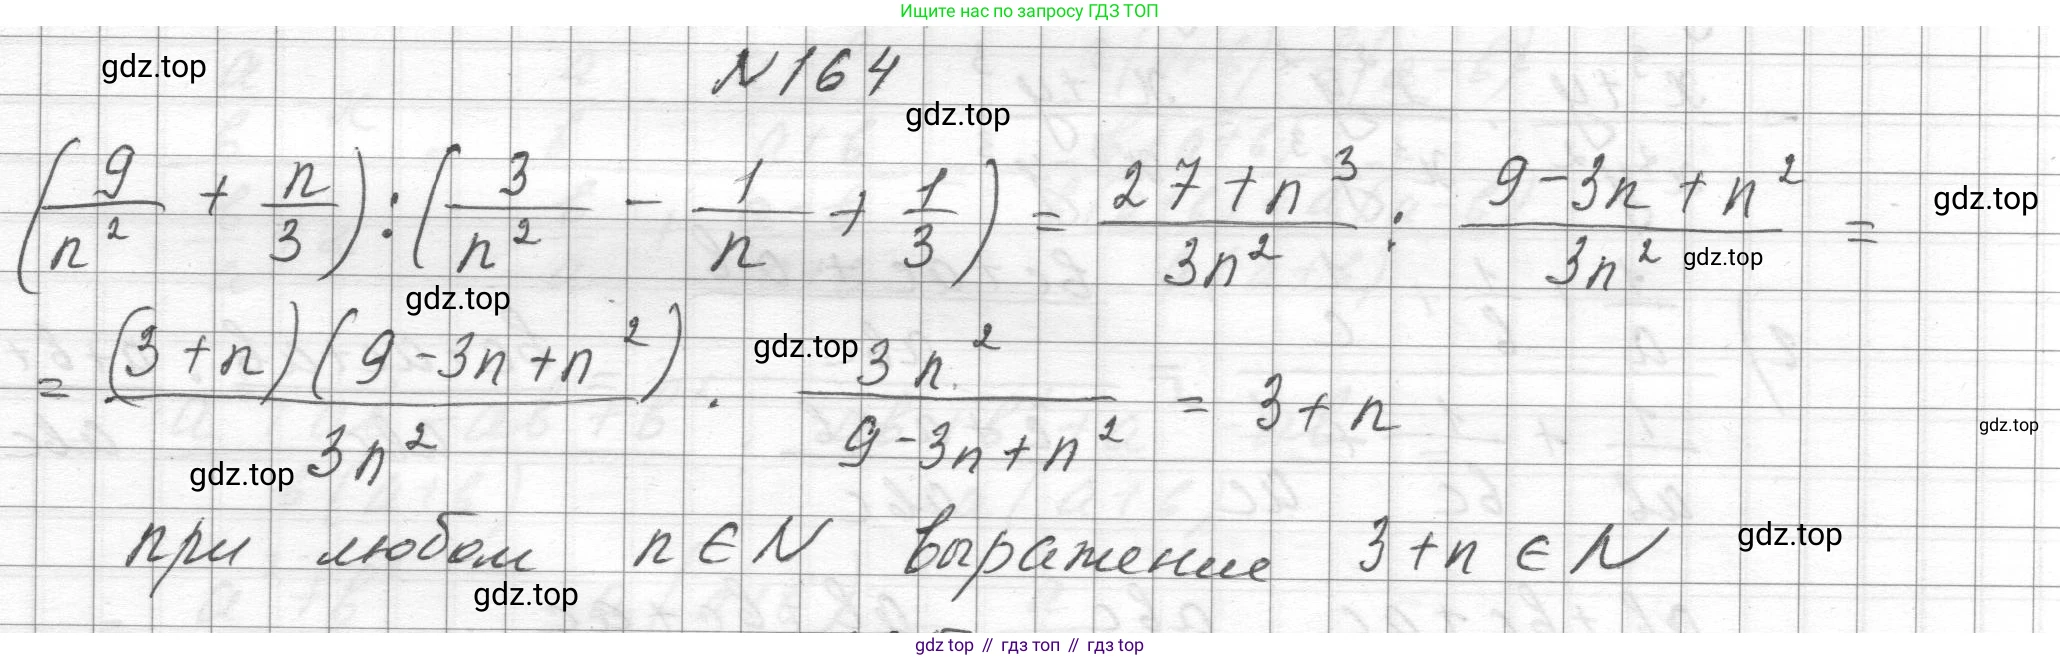 Ищите нас по запросу ГДЗ ТОП
gdz.top
N 164
gdz.top
(9/n² + n/3) : (3/n² - 1/n + 1/3) = (27+n³)/(3n²) : (9-3n+n²)/(3n²) =
gdz.top
gdz.top
gdz.top
= ((3+n)(9-3n+n²))/(3n²) · (3n²)/(9-3n+n²) = 3+n
gdz.top
gdz.top
gdz.top
при любом n ∈ N выражение 3+n ∈ N
gdz.top
gdz.top
gdz top // гдз топ // гдз top